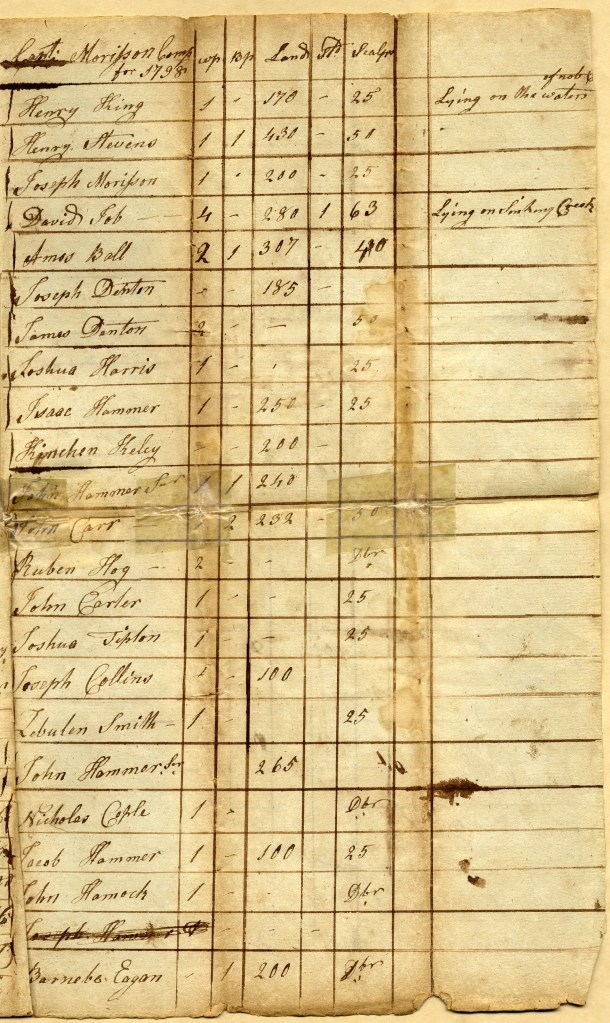 Capt. Morisson Comp wp Bp Land Sd Scalps
for 1798
of nobs
Henry King 1 - 170 - 25 Lying on the waters
Henry Stevens 1 1 430 - 50 "
Joseph Morisson 1 - 200 - 25
David Job - 4 - 280 1 63 Lying on Sinking Creek
Amos Ball 2 1 307 - 40
Joseph Denton - - 185 -
James Denton 2 - - 50
Joshua Harris 1 - - 25
Isaac Hammer 1 - 250 - 25
Kinchen Keley - - 200 -
John Hammer Sar 1 1 240
John Carr 2 232 - 50
Ruben Hog - 2 - - Dbr
John Carter 1 - - 25
Joshua Tipton 1 - - 25
Joseph Collins 1 - 100
Zebulen Smith - 1 - 25
John Hammer Sr 265
Nicholas Cople 1 - Dbr
Jacob Hammer 1 - 100 25
John Hamock 1 - Dbr
Joseph - - -
Barneba Eagan - 1 200 Dbr